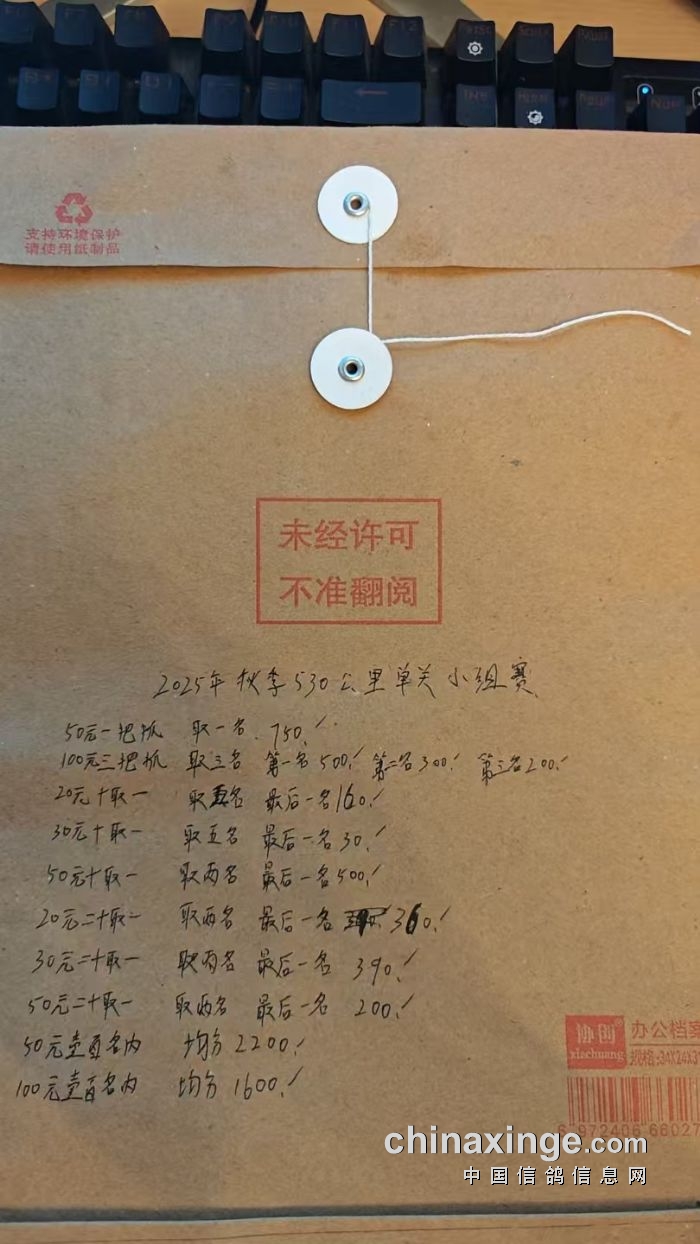 支持环境保护
请使用纸制品
未经许可
不准翻阅
2025年秋季530公里单关小组赛
50元一把抓 取一名 750.
100元三把抓 取三名 第一名500. 第二名300. 第三名200.
20元十取一 取五名 最后一名160.
30元十取一 取五名 最后一名30.
50元十取一 取两名 最后一名500.
20元二十取一 取两名 最后一名 360.
30元二十取一 取两名 最后一名 390.
50元二十取一 取两名 最后一名 200.
50元壹百名内 均分2200.
100元壹百名内 均分1600.
协创® 办公档案
xiechuang 规格:34X24X3
6 972406 66027
chinaxinge.com
中国信鸽信息网